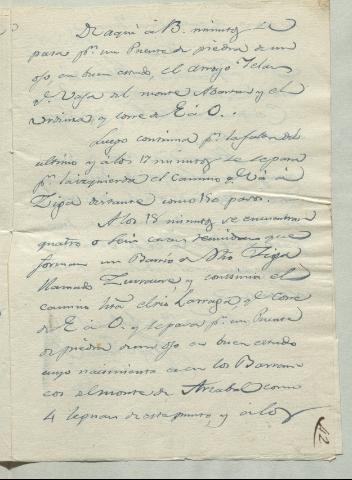 De aqui á 13. minutos se
pasa pr. un Puente de piedra de un
ojo, en buen estado, el arroyo
qe. vaja del monte Abarran y el
y corre de E á O.
Luego continua pr. la falda del
ultimo y á los 17 minutos se separa
pr. la izquierda el camino qe. vá á
Ziga distante como 150 pasos.
A los 18 minutos se encuentran
quatro o seis casas reunidas que
forman un Barrio de dho Ziga
llamado Zuraure y continua el
camino hta. el rio Larraga qe. corre
de E á O. y se pasa pr. un Puente
de piedra de un ojo en buen estado
cuyo nacimiento es en los Barran
cos del monte de Arcabal como
4 leguas de este punto, y a los
42